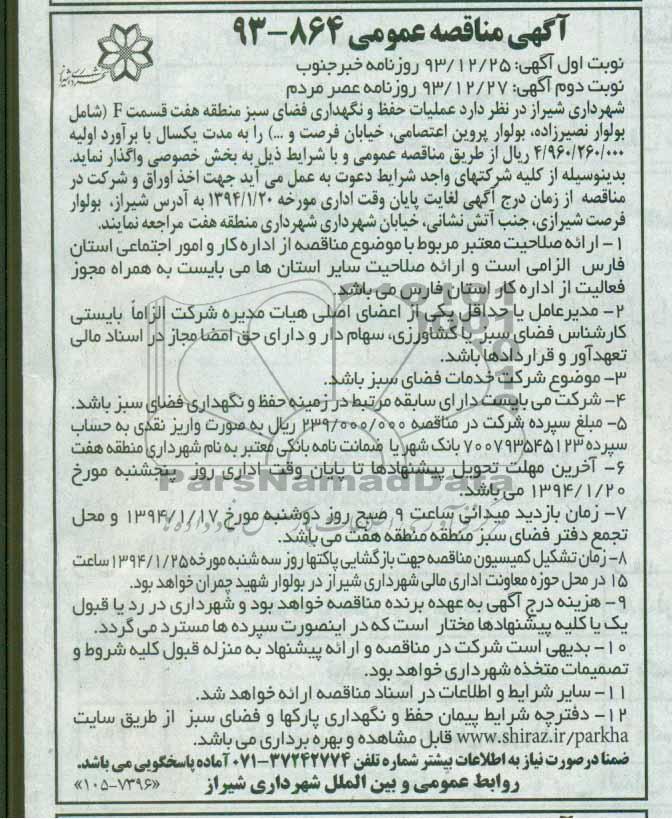 آگهی مناقصه عمومی ۸۶۴-۹۳
نوبت اول آگهی: ۹۳/۱۲/۲۵ روزنامه خبرجنوب
نوبت دوم آگهی: ۹۳/۱۲/۲۷ روزنامه عصر مردم
شهرداری شیراز در نظر دارد عملیات حفظ و نگهداری فضای سبز منطقه هفت قسمت F (شامل
بولوار نصیرزاده، بولوار پروین اعتصامی، خیابان فرصت و ...) را به مدت یکسال با برآورد اولیه
۴/۹۶۰/۲۶۰/۰۰۰ ریال از طریق مناقصه عمومی و با شرایط ذیل به بخش خصوصی واگذار نماید.
بدینوسیله از کلیه شرکتهای واجد شرایط دعوت به عمل می آید جهت اخذ اوراق و شرکت در
مناقصه از زمان درج آگهی لغایت پایان وقت اداری مورخه ۱۳۹۴/۱/۲۰ به آدرس شیراز، بولوار
فرصت شیرازی، جنب آتش نشانی، خیابان شهرداری شهرداری منطقه هفت مراجعه نمایند.
۱- ارائه صلاحیت معتبر مربوط با موضوع مناقصه از اداره کار و امور اجتماعی استان
فارس الزامی است و ارائه صلاحیت سایر استان ها می بایست به همراه مجوز
فعالیت از اداره کار استان فارس می باشد.
۲- مدیرعامل یا حداقل یکی از اعضای اصلی هیات مدیره شرکت الزاماً بایستی
کارشناس فضای سبز یا کشاورزی، سهام دار و دارای حق امضا مجاز در اسناد مالی
تعهدآور و قراردادها باشد.
۳- موضوع شرکت خدمات فضای سبز باشد.
۴- شرکت می بایست دارای سابقه مرتبط در زمینه حفظ و نگهداری فضای سبز باشد.
۵- مبلغ سپرده شرکت در مناقصه ۲۳۹/۰۰۰/۰۰۰ ریال به صورت واریز نقدی به حساب
سپرده ۷۰۰۷۹۳۵۴۵۱۲۳ بانک شهر یا ضمانت نامه بانکی معتبر به نام شهرداری منطقه هفت
۶- آخرین مهلت تحویل پیشنهادها تا پایان وقت اداری روز پنجشنبه مورخ
۱۳۹۴/۱/۲۰ می باشد.
ParsNamadData
۷- زمان بازدید میدانی ساعت ۹ صبح روز دوشنبه مورخ ۱۳۹۴/۱/۱۷ و محل
تجمع دفتر فضای سبز منطقه منطقه هفت می باشد.
۸- زمان تشکیل کمیسیون مناقصه جهت بازگشایی پاکتها روز سه شنبه مورخه ۱۳۹۴/۱/۲۵ ساعت
۱۵ در محل حوزه معاونت اداری مالی شهرداری شیراز در بولوار شهید چمران خواهد بود.
۹- هزینه درج آگهی به عهده برنده مناقصه خواهد بود و شهرداری در رد یا قبول
یک یا کلیه پیشنهادها مختار است که در اینصورت سپرده ها مسترد می گردد.
۱۰- بدیهی است شرکت در مناقصه و ارائه پیشنهاد به منزله قبول کلیه شروط و
تصمیمات متخذه شهرداری خواهد بود.
۱۱- سایر شرایط و اطلاعات در اسناد مناقصه ارائه خواهد شد.
۱۲- دفترچه شرایط پیمان حفظ و نگهداری پارکها و فضای سبز از طریق سایت
www.shiraz.ir/parkha قابل مشاهده و بهره برداری می باشد.
ضمنا در صورت نیاز به اطلاعات بیشتر شماره تلفن ۳۷۲۴۲۷۷۴-۰۷۱ آماده پاسخگویی می باشد.
روابط عمومی و بین الملل شهرداری شیراز
«۱۰۵-۷۳۹۶»